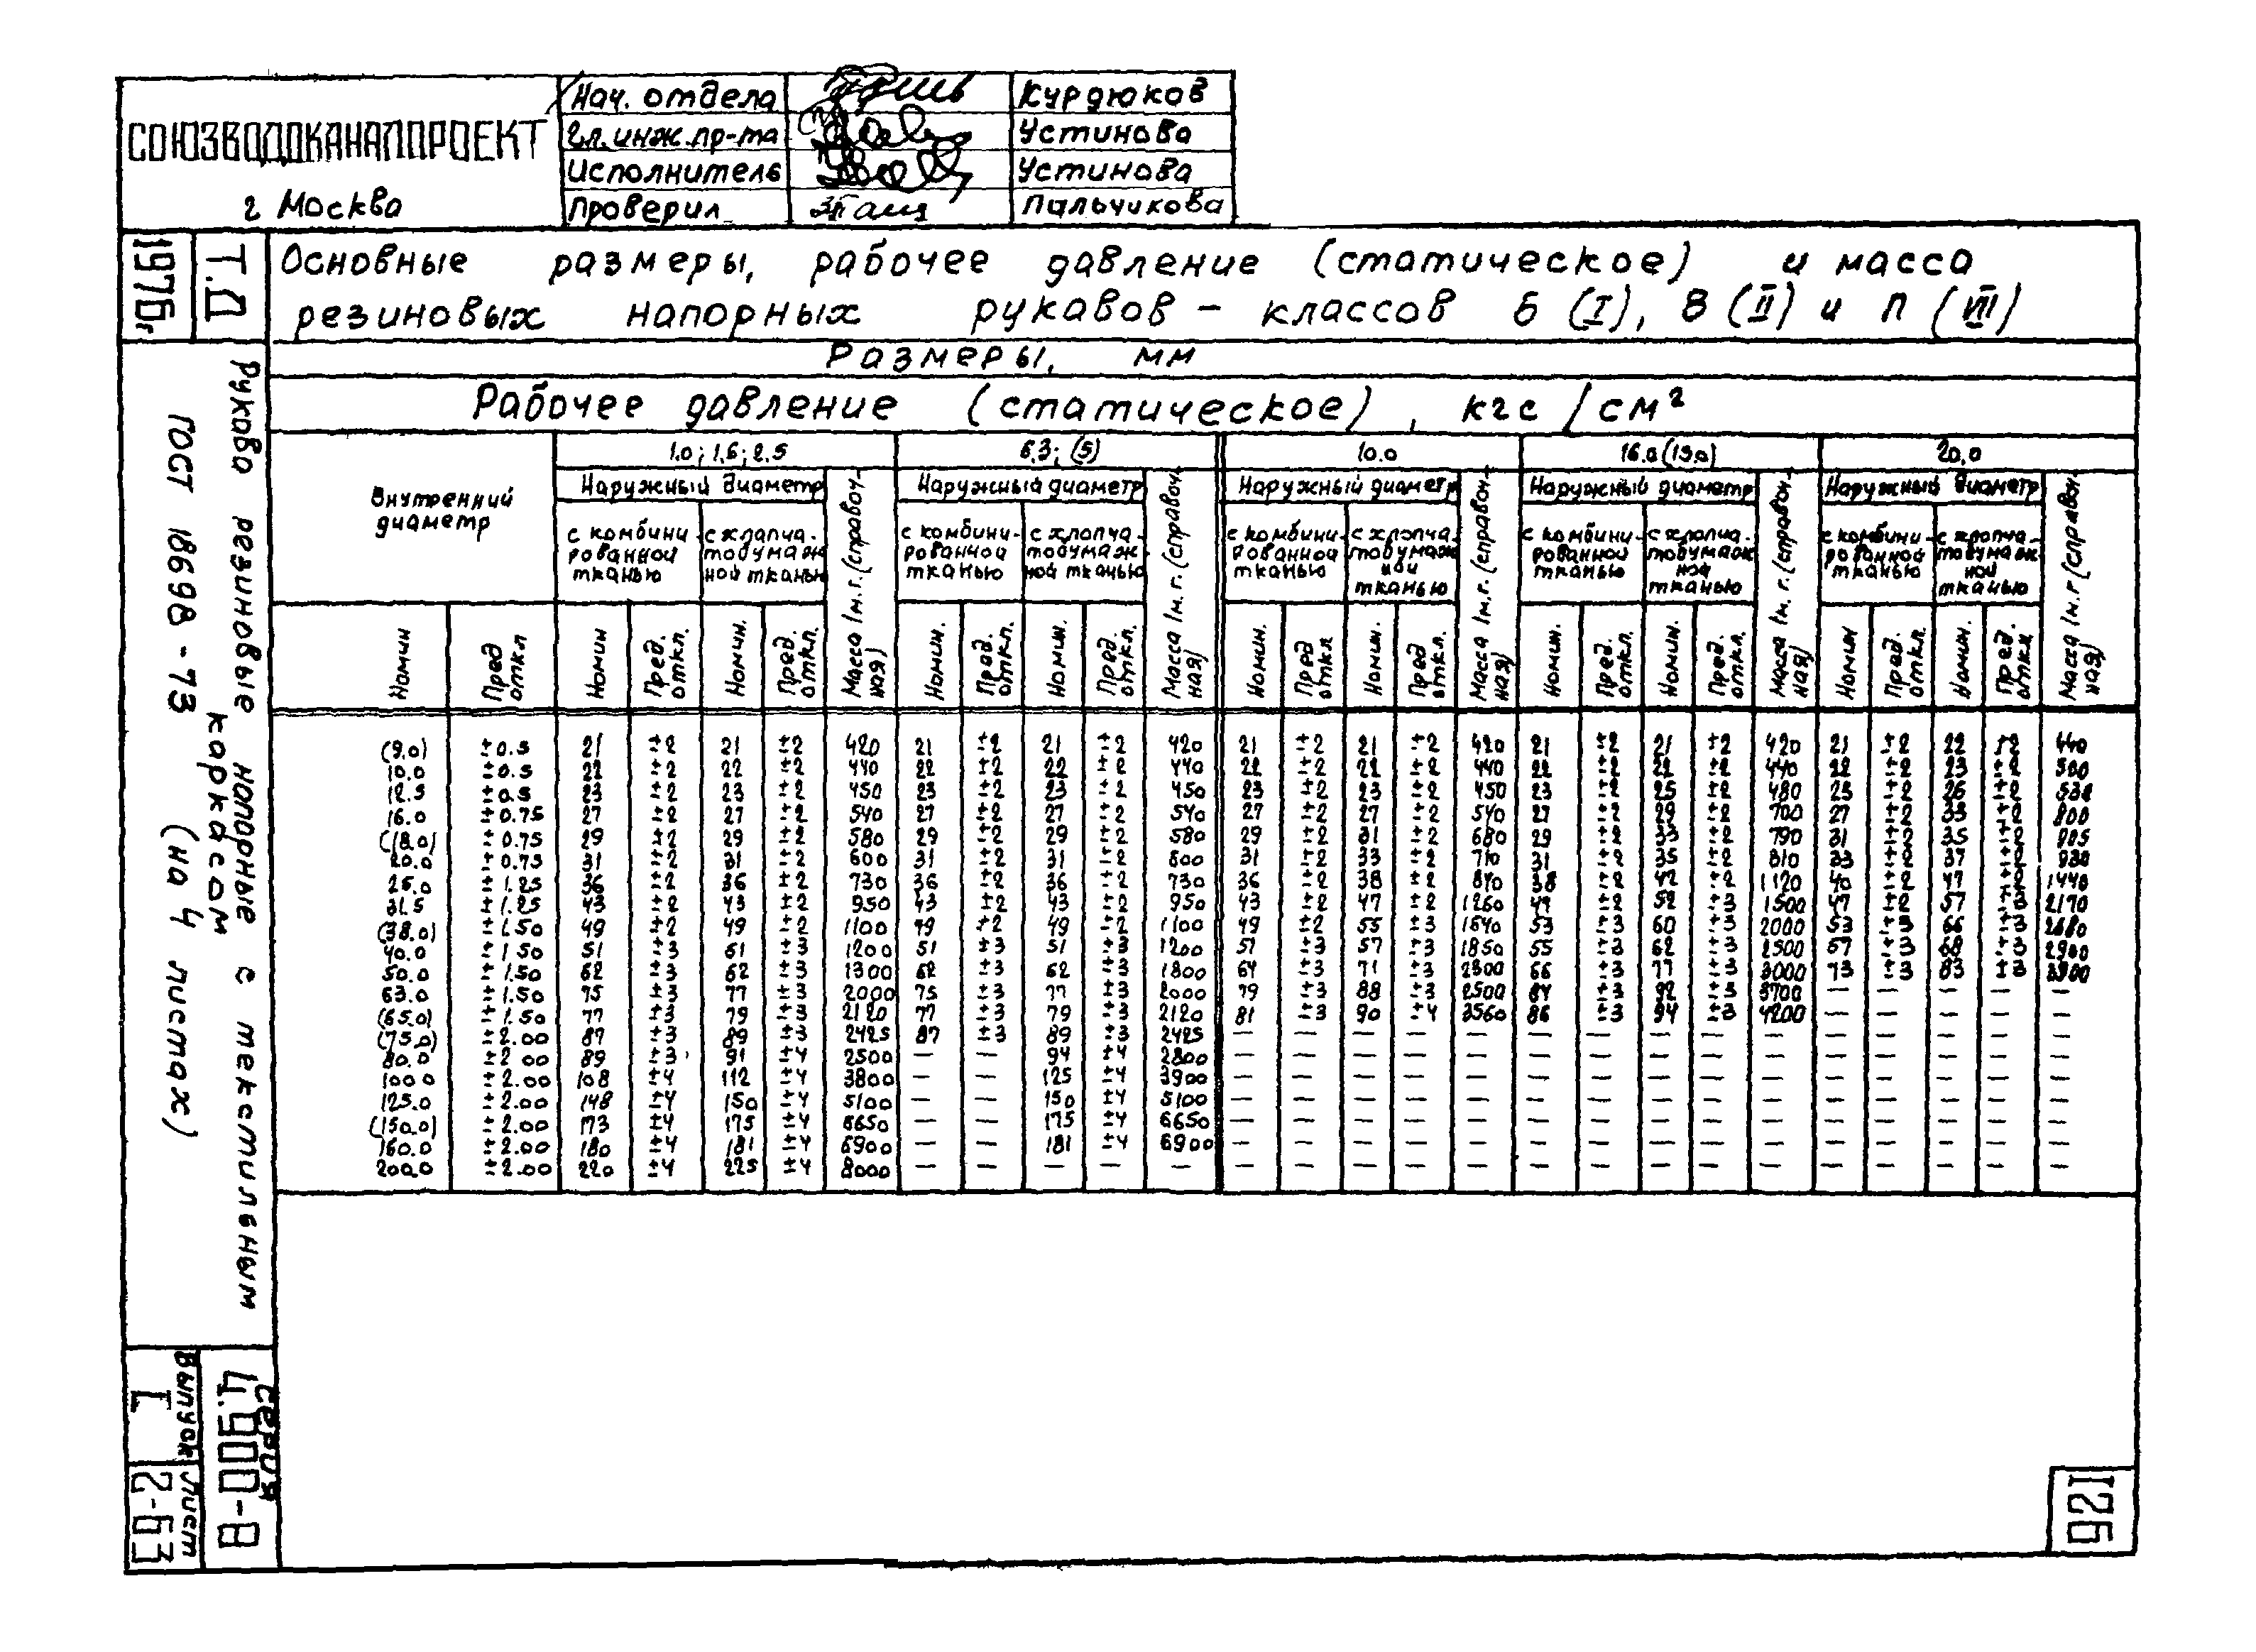 СОЮЗВОДОКАНАЛПРОЕКТ
г Москва
Нач. отдела Курдюков
Гл. инж. пр-та Устинова
Исполнитель Устинова
Проверил Пальчикова
1976г.
Т.Д
Основные размеры, рабочее давление (статическое) и масса
резиновых напорных рукавов - классов Б (I), В (II) и П (VIII)
Размеры, мм
Рабочее давление (статическое), кгс/см²
Внутренний
диаметр
1.0; 1.6; 2.5
6.3; (5)
10.0
16.0 (15.0)
20,0
Наружный диаметр
Наружный диаметр
Наружный диаметр
Наружный диаметр
Наружный диаметр
с комбини-
рованной
тканью
с хлопча-
тобумаж
ной тканью
Масса 1м. г. (справоч-
ная)
с комбини-
рованной
тканью
с хлопча-
тобумаж
ной тканью
Масса 1м. г. (справоч-
ная)
с комбини-
рованной
тканью
с хлопча-
тобумаж
ной
тканью
Масса 1м. г. (справоч-
ная)
с комбини-
рованной
тканью
с хлопча-
тобумаж
ной
тканью
Масса 1м. г. (справоч-
ная)
с комбини-
рованной
тканью
с хлопча-
тобумаж
ной
тканью
Масса 1м. г. (справоч-
ная)
Номин Пред откл Номин Пред. откл. Номин. Пред. откл. Номин. Пред. откл. Номин. Пред. откл. Номин. Пред откл Номин. Пред откл. Номин. Пред. откл. Номин. Пред. откл. Номин Пред. откл. Номин. Пред. откл
(9.0) ±0.5 21 ±2 21 ±2 420 21 ±2 21 ±2 420 21 ±2 21 ±2 420 21 ±2 21 ±2 420 21 ±2 22 ±2 440
10.0 ±0.5 22 ±2 22 ±2 440 22 ±2 22 ±2 440 22 ±2 22 ±2 440 22 ±2 22 ±2 440 22 ±2 23 ±2 500
12.5 ±0.5 23 ±2 23 ±2 450 23 ±2 23 ±2 450 23 ±2 23 ±2 450 23 ±2 25 ±2 480 23 ±2 26 ±2
16.0 ±0.75 27 ±2 27 ±2 540 27 ±2 27 ±2 540 27 ±2 27 ±2 540 27 ±2 29 ±2 700 27 ±2 33 ±2 800
(18.0) ±0.75 29 ±2 29 ±2 580 29 ±2 29 ±2 580 29 ±2 31 ±2 680 29 ±2 33 ±2 790 31 ±2 35 ±2
20.0 ±0.75 31 ±2 31 ±2 600 31 ±2 31 ±2 600 31 ±2 33 ±2 710 31 ±2 35 ±2 810 33 ±2 37 ±2
25.0 ±1.25 36 ±2 36 ±2 730 36 ±2 36 ±2 730 36 ±2 38 ±2 840 38 ±2 42 ±2 1120 40 ±2 47 ±2 1440
31.5 ±1.25 43 ±2 43 ±2 950 43 ±2 43 ±2 950 43 ±2 47 ±2 1260 47 ±2 52 ±3 1500 47 ±2 57 ±3 2170
(38.0) ±1.50 49 ±2 49 ±2 1100 49 ±2 49 ±2 1100 49 ±2 55 ±3 1640 53 ±3 60 ±3 2000 53 ±3 66 ±3
40.0 ±1.50 51 ±3 51 ±3 1200 51 ±3 51 ±3 1200 51 ±3 57 ±3 1850 55 ±3 62 ±3 2500 57 ±3 68 ±3 2900
50.0 ±1.50 62 ±3 62 ±3 1300 62 ±3 62 ±3 1800 64 ±3 71 ±3 2300 66 ±3 77 ±3 3000 73 ±3 83 ±3
63.0 ±1.50 75 ±3 77 ±3 2000 75 ±3 77 ±3 2000 79 ±3 88 ±3 2500 84 ±3 92 ±3 3700 — — — — —
(65.0) ±1.50 77 ±3 79 ±3 2120 77 ±3 79 ±3 2120 81 ±3 90 ±4 3560 86 ±3 94 ±3 4200 — — — — —
(75.0) ±2.00 87 ±3 89 ±3 2425 87 ±3 89 ±3 2425 — — — — — — — — — — — — — — —
80.0 ±2.00 89 ±3 91 ±4 2500 — — 94 ±4 2800 — — — — — — — — — — — — — — —
100.0 ±2.00 108 ±4 112 ±4 3800 — — 125 ±4 3900 — — — — — — — — — — — — — — —
125.0 ±2.00 148 ±4 150 ±4 5100 — — 150 ±4 5100 — — — — — — — — — — — — — — —
(150.0) ±2.00 173 ±4 175 ±4 6650 — — 175 ±4 6650 — — — — — — — — — — — — — — —
160.0 ±2.00 180 ±4 181 ±4 6900 — — 181 ±4 6900 — — — — — — — — — — — — — — —
200.0 ±2.00 220 ±4 225 ±4 8000 — — — — — — — — — — — — — — — — — — — —
Рукава резиновые напорные с текстильным
каркасом
ГОСТ 18698-73 (на 4 листах)
серия
4.900-8
Выпуск
I
Лист
2-63
126